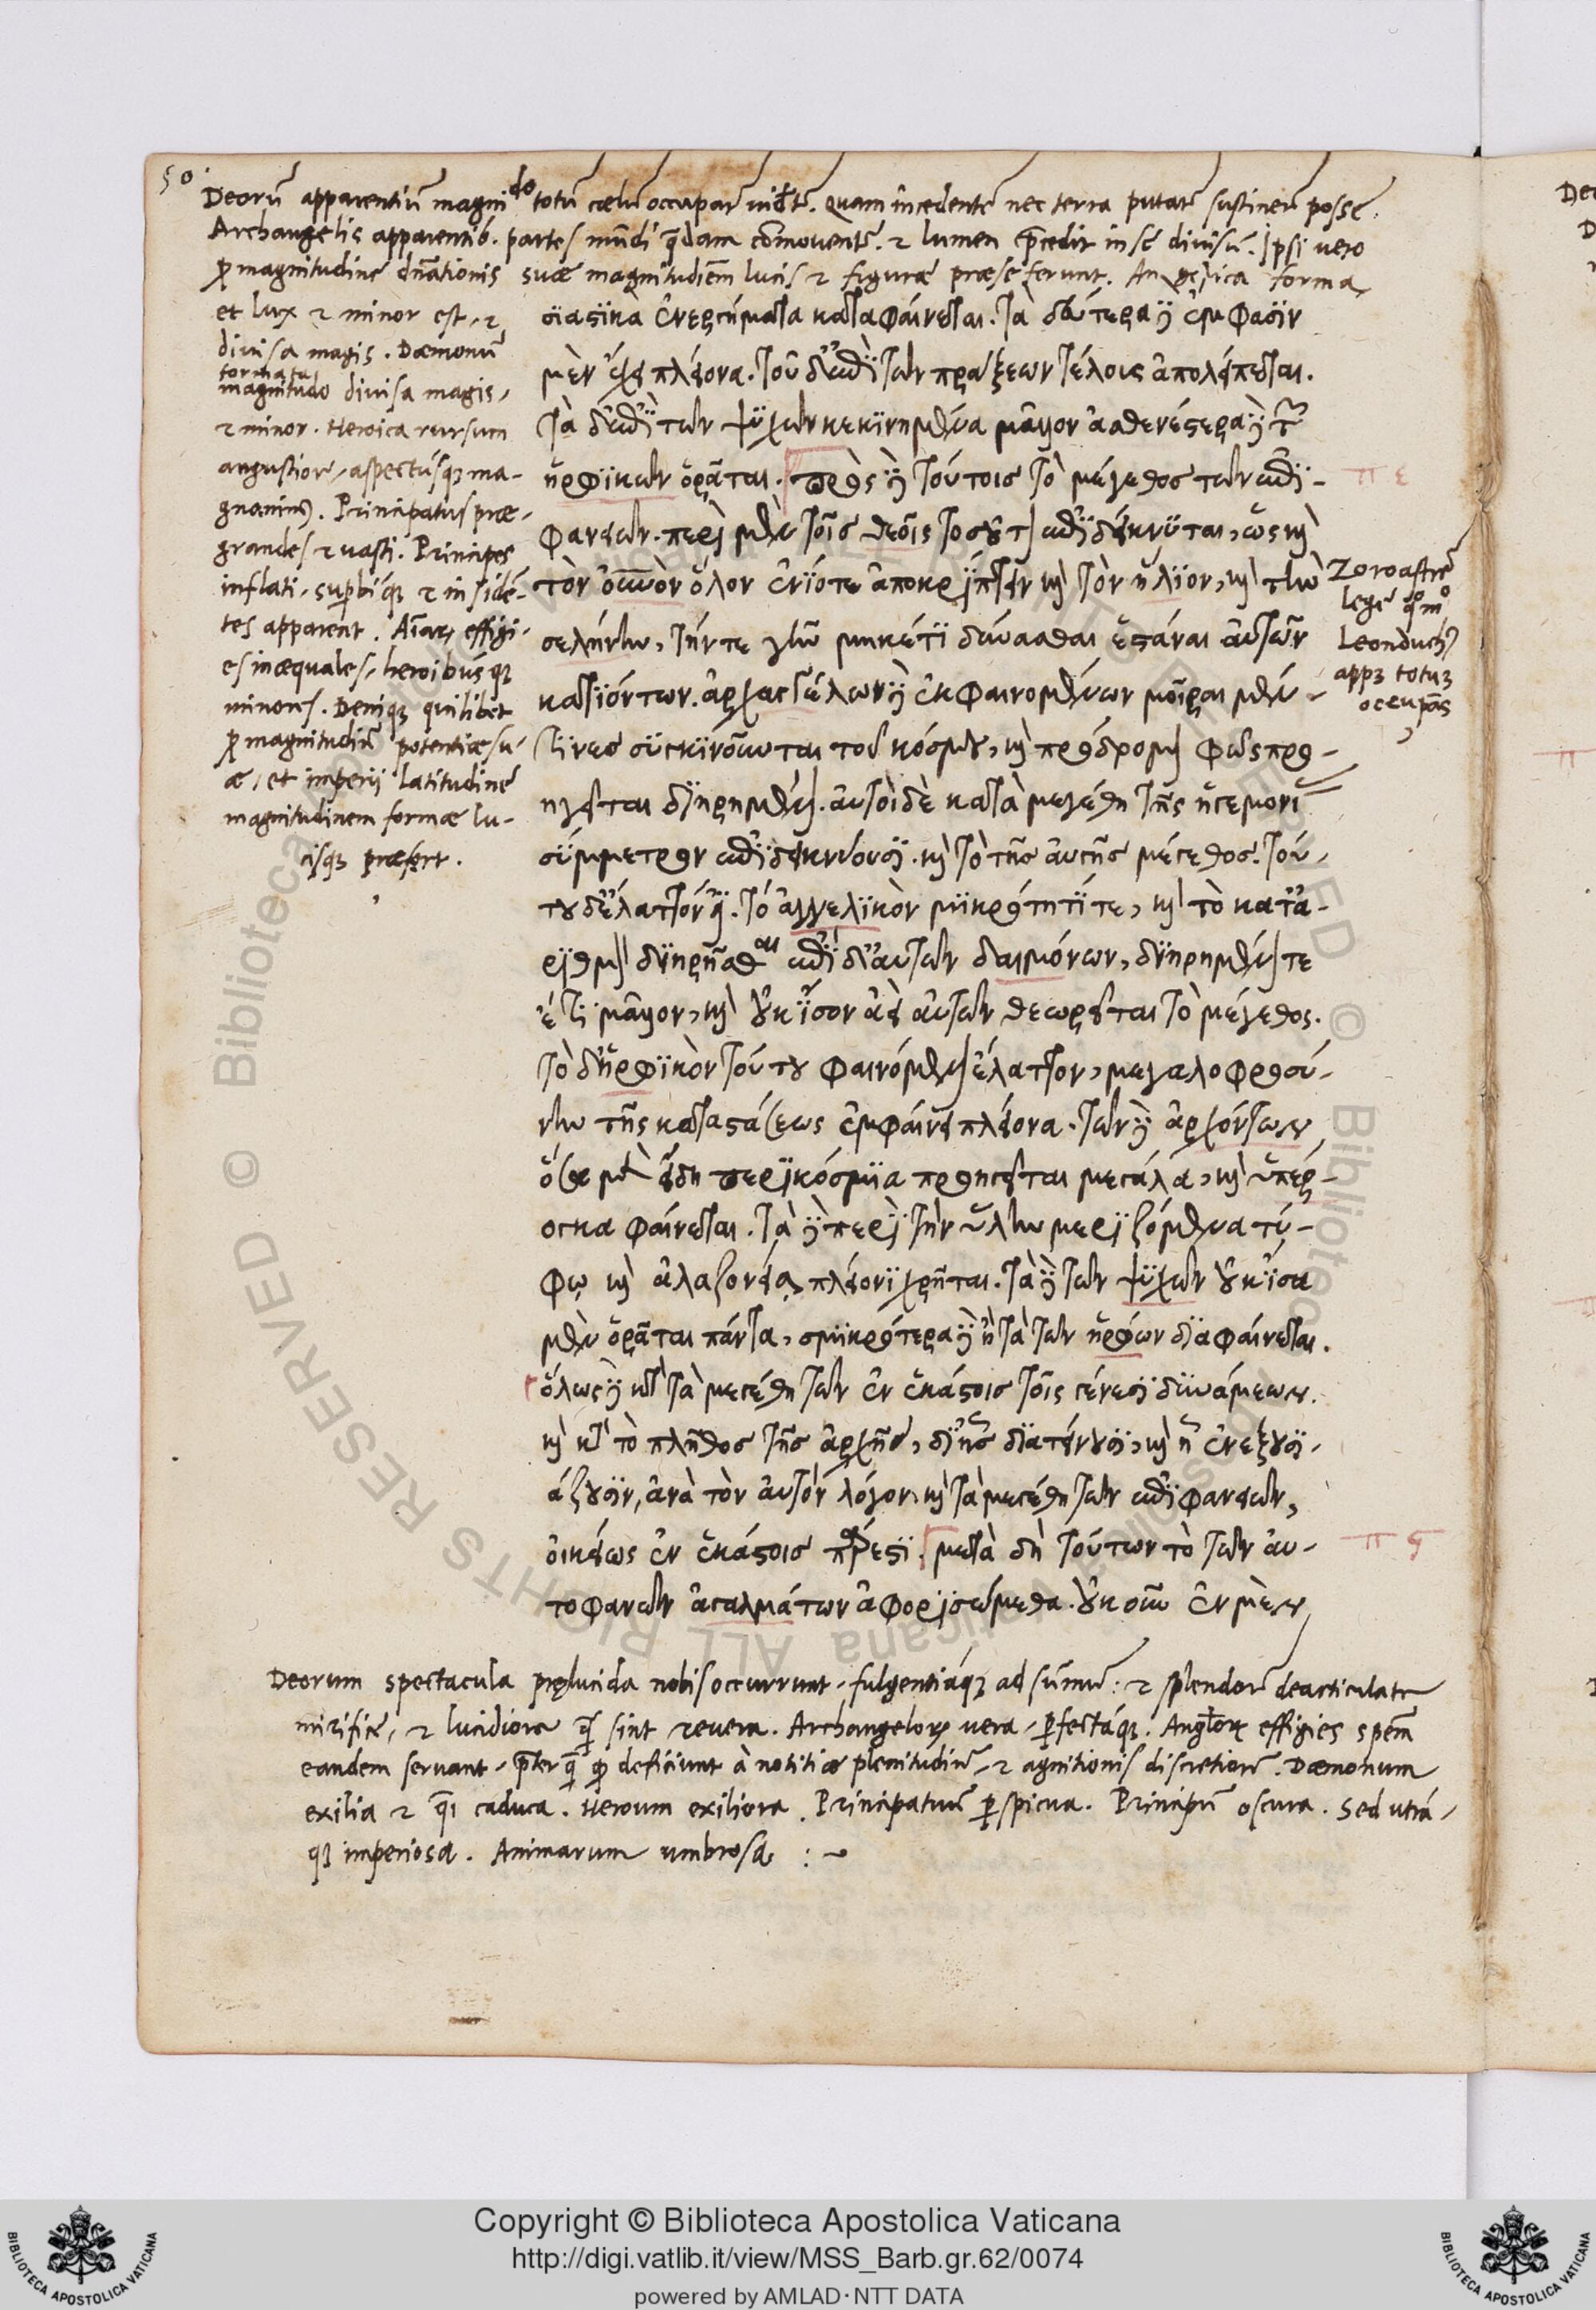 50.
Deorū apparentiū magnido totū cœlū occupare vidēt. Quam incedentē nec terra putat sustinere posse.
Archangelis apparentib. partes mūdi q̄dam cōmoventr. & lumen p̄cedit in se divisū. Ipsi vero
p magnitudine dn̄ationis suæ magnitudiēm lucis & figuræ præ se ferunt. Angelica forma
et lux & minor est, &
divisa magis. Dæmonū
formatu
magnitudo divisa magis,
& minor. Heroica rursum
angustior, aspectúsqȝ ma-
gnanimꝰ. Principatus præ-
grandes & vasti. Principes
inflati, supbiqȝ & insidē-
tes apparent. Aīarȝ effigi-
es inæquales, heroibúsqȝ
minores. Deniqȝ quilibet
p magnitudine potentiæ su-
æ, et imperij latitudine
magnitudinem formæ lu-
cisqȝ præfert.
σιαϛικὰ ἐνεργήματα καταφαίνεται. τὰ δεύτερα δὲ ἔμφασιν
μὲν ἔχει πλείονα. τοῦ δὲ ἐπὶ τῶν πράξεων τέλους ἀπολείπεται.
τὰ δὲ ἐπὶ τῶν ψυχῶν κεκινημένα μᾶλλον ἀσθενέϛερα δὲ τῶν
ἡρωικῶν ὁρᾶται. πρὸς δὲ τούτοις τὸ μέγεθος τῶν ἐπι-
φανειῶν. περὶ μὲν τοῖς θεοῖς τοσοῦτον ἐπιδείκνυται, ὡς καὶ
τὸν οὐνὸν ὅλον ἐνίοτε ἀποκρύπτειν καὶ τὸν ἥλιον, καὶ τὴν
σελήνην, τήν τε γῆν μηκέτι δύνασθαι ἑϛάναι αὐτῶν
κατιόντων. ἀρχαγγέλων δὲ ἐκφαινομένων μοῖραι μέν
τινες συγκινοῦνται τοῦ κόσμου, καὶ πρόδρομον φῶς προ-
ηγεῖται διῃρημένον. αὐτοὶ δὲ κατὰ μεγέθη τῆς ἡγεμονί
σύμμετρον ἐπιδεικνύουσι. καὶ τὸ τῆς αὐγῆς μέγεθος. τού-
του δ᾽ ἔλαττόν ἐϛι. τὸ ἀγγελικὸν μικρότητί τε, καὶ τὸ κατὰ
ἀριθμὸν διῃρῆσθαι ἐπὶ δ᾽ αὐτῶν δαιμόνων, διῃρημένον τε
ἔτι μᾶλλον, καὶ οὐκ ἴσον ἀεὶ αὐτῶν θεωρεῖται τὸ μέγεθος.
τὸ δ᾽ ἡρωικὸν τούτου φαινόμενον ἔλαττον, μεγαλοφροσύ-
νην τῆς καταϛάσεως ἐμφαίνει πλείονα. τῶν δὲ ἀρχόντων
ὅσα μὲν εἴδη περικόσμια προηγεῖται μεγάλα, καὶ ὑπέρ-
ογκα φαίνεται. τὰ δὲ περὶ τὴν ὕλην μεριζόμενα τύ-
φῳ καὶ ἀλαζονείᾳ πλείονι χρῆται. τὰ δὲ τῶν ψυχῶν οὐκ ἴσα
μὲν ὁρᾶται πάντα, σμικρότερα δὲ ἢ τὰ τῶν ἡρώων διαφαίνεται.
ὅλως δὲ κατὰ τὰ μεγέθη τῶν ἐν ἑκάϛοις τοῖς γένεσι δυνάμεων.
καὶ κατὰ τὸ πλῆθος τῆς ἀρχῆς, δι᾽ ἧς διατείνουσι, καὶ ᾗ ἐνεξουσι-
άζουσιν, ἀνὰ τὸν αὐτὸν λόγον, καὶ τὰ μεγέθη τῶν ἐπιφανειῶν,
οἰκείως ἐν ἑκάϛοις πάρεϛι. μετὰ δὴ τούτων τὸ τῶν αὐ-
τοφανῶν ἀγαλμάτων ἀφορισώμεθα. οὐκοῦν ἐν μὲν
π ε
Zoroastrē
lege q̊mō
Leonduchꝰ
appȝ totuȝ
occupās
π ϛ
Deorum spectacula prelucida nobis occurrunt, fulgentiáqȝ ad sūmū: & splendore dearticulate
mirifice, & lucidiora q̄ sint revera. Archangelorȝ vera, pfectáqȝ. Angelorȝ effigies spēm
eandem servant, p̄ter q̄ qd deficiunt à notitiæ plenitudine, & agnitionis discretione. Dæmonum
exilia & q̄i caduca. Heroum exiliora. Principatuū pspicua. Principū oscura. Sed utrá-
qȝ imperiosa. Animarum umbrosa :~
Copyright © Biblioteca Apostolica Vaticana
http://digi.vatlib.it/view/MSS_Barb.gr.62/0074
powered by AMLAD·NTT DATA